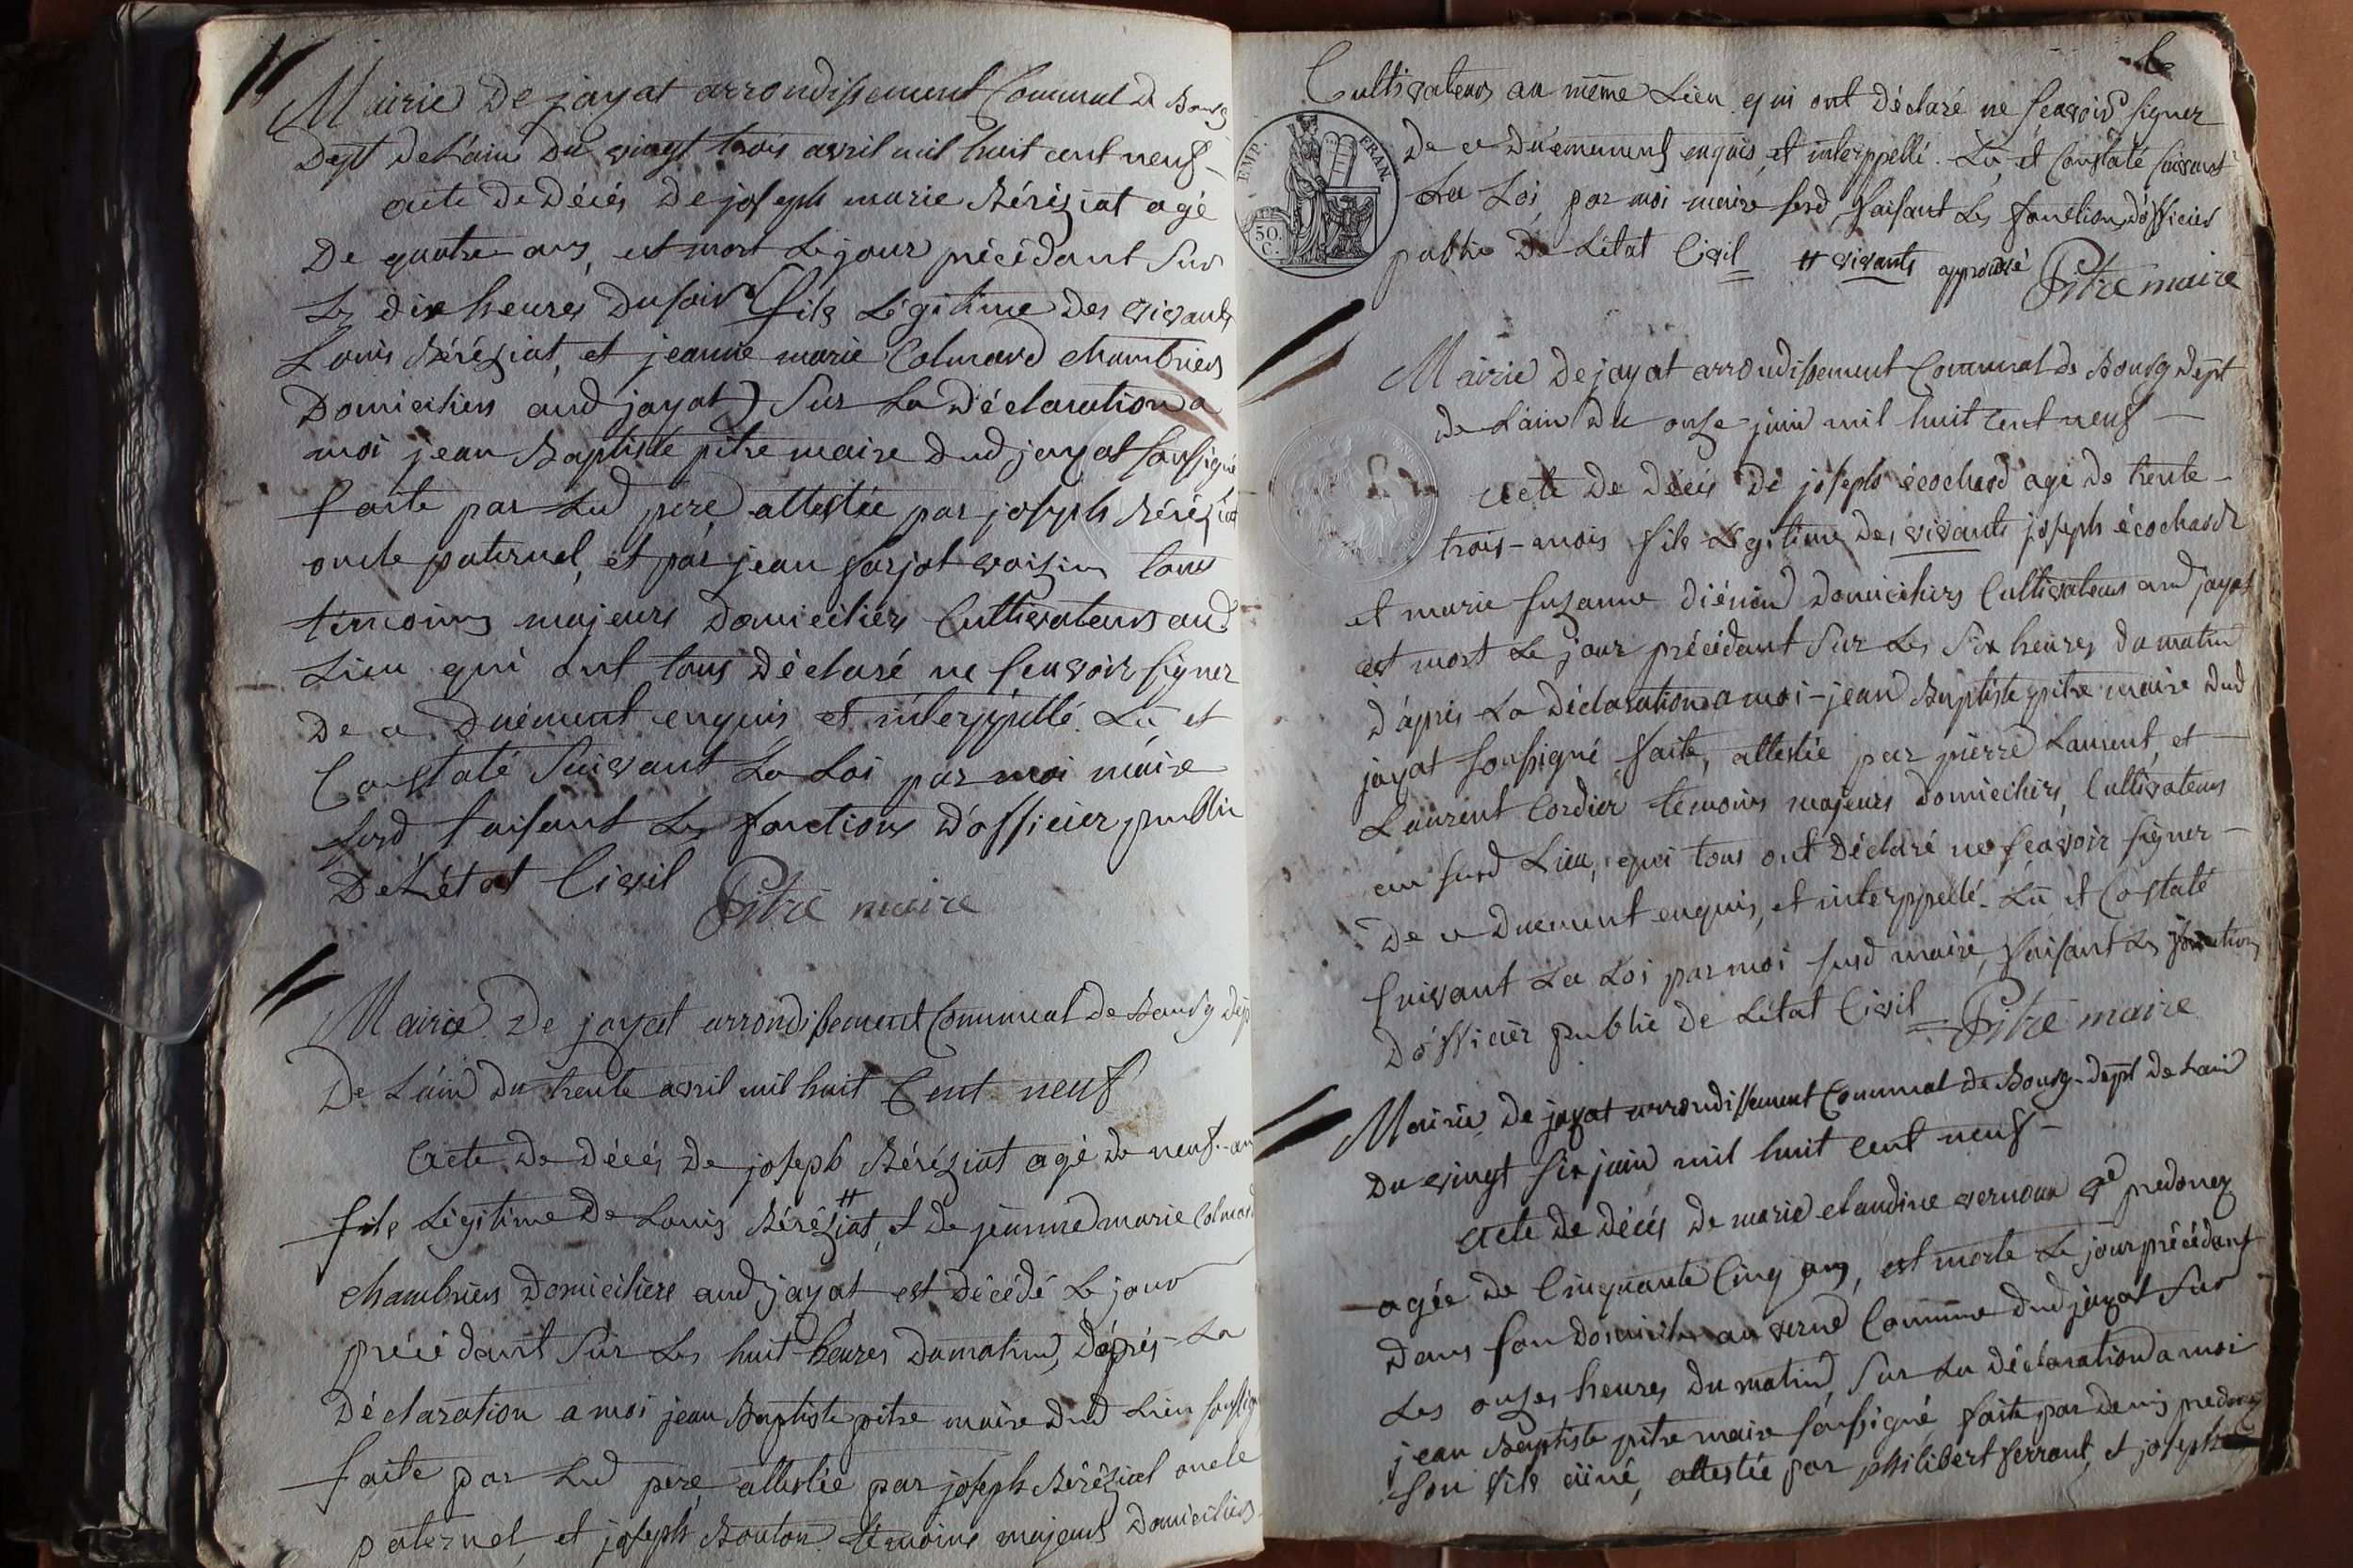 Mairie De jayat arrondissement Communal de Bourg
Dept De L'ain Du vingt trois avril mil huit cent neuf -
acte De Décés De joseph marie Béréziat agé
De quatre ans, est mort Le jour précédant Sur
Les dix heures Du soir (fils Légitime Des vivants
Louis Béréziat, et jeanne marie Colmard chambriers
Domiciliers aud jayat) Sur La Déclaration a
moi jean Baptiste pitre maire Dud jayat soussigné
faite par Led pere attestée par joseph Béréziat
oncle paternel, et par jean farjot voizin tous
témoins majeurs Domiciliers Cultivateurs aud
Lieu qui ont tous Déclaré ne sçavoir signer
De ce Duement enquis et interppellé. Lu, et
Constaté Suivant La Loi par moi maire
susd faisant Les fonctions D'officier public
De L'état Civil Pitre maire
Mairie De jayat arrondissement Communal De Bourg Dept
De L'ain Du trente avril mil huit Cent neuf
Acte De Décés De joseph Béréziat agé de neuf ans
fils Légitime De Louis Béréziat, et De jeanne marie Colmard
chambriers Domiciliers aud jayat est Décédé Le jour
précédant Sur Les huit heures Du matin, D'après La
Déclaration a moi jean Baptiste pitre maire Dud Lieu soussigné
faite par Led pere attestée par joseph Béréziat oncle
paternel, et joseph Bouton témoins majeurs Domiciliers
Cultivateurs au même Lieu qui ont Déclaré ne sçavoir signer
De ce Duemment enquis, et interppellé. Lu, et Constaté suivant
La Loi par moi maire susd faisant Les fonctions D'officier
public De L'état Civil = # vivants approuvé Pitre maire
EMP. FRAN.
50.
C.
Mairie De jayat arrondissement Communal de Bourg Dept
de L'ain Du onze juin mil huit cent neuf -
acte De Décés De joseph écochard agé de trente -
trois - mois fils Légitime Des vivants joseph écochard
et marie suzanne Domiciliers Cultivateurs aud jayat
est mort Le jour précédant Sur Les six heures du matin
D'après La Déclaration a moi - jean Baptiste pitre maire Dud
jayat soussigné faite, attestée par pierre Laurent, et
Laurent Cordier témoins majeurs Domiciliers, Cultivateurs
au susd Lieu, qui tous ont Déclaré ne sçavoir signer -
De ce Duement enquis, et interppellé. Lu, et Costaté
suivant La Loi par moi susd maire, faisant Les fonctions
D'officier public De L'état Civil = Pitre maire
Mairie De jayat arrondissement Communal De Bourg - Dept De L'ain
Du vingt six juin mil huit cent neuf -
acte De Décés De marie claudine vernoux ve predonez
agée De Cinquante Cinq ans, est morte Le jour précédant
Dans son Domicile au Commune Dud jayat Sur
Les onzes heures Du matin, Sur La Déclaration a moi
jean Baptiste pitre maire soussigné, faite par Denis
son fils aîné, attestée par philibert ferrant, et joseph